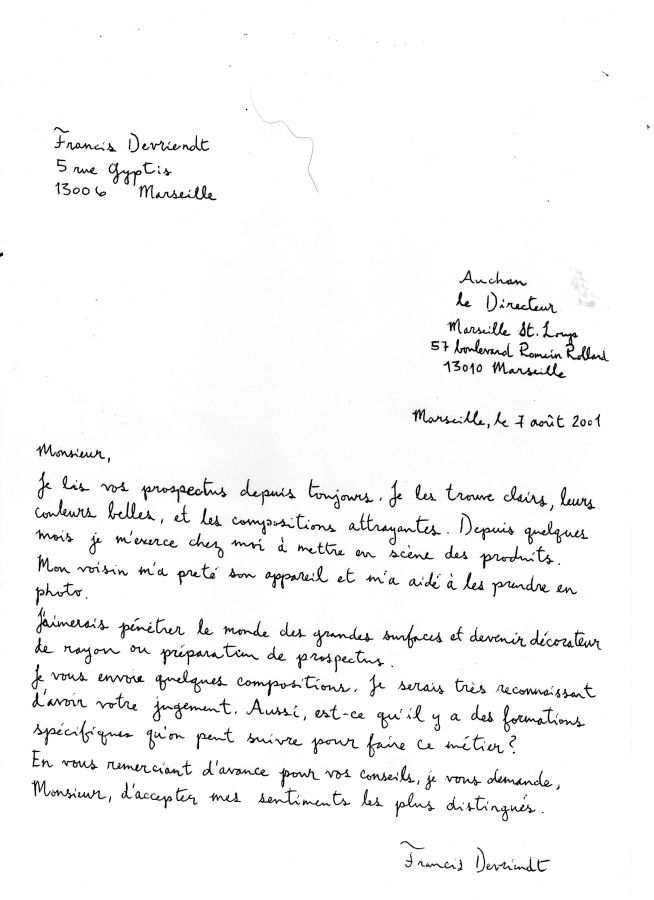 Francis Devriendt
5 rue Gyptis
13006 Marseille
Auchan
le Directeur
Marseille St. Loup
57 boulevard Romain Rolland
13010 Marseille
Marseille, le 7 août 2001
Monsieur,
Je lis vos prospectus depuis toujours. Je les trouve clairs, leurs
couleurs belles, et les compositions attrayantes. Depuis quelques
mois je m'exerce chez moi à mettre en scène des produits.
Mon voisin m'a preté son appareil et m'a aidé à les prendre en
photo.
J'aimerais pénétrer le monde des grandes surfaces et devenir décorateur
de rayon ou préparateur de prospectus.
Je vous envoie quelques compositions. Je serais très reconnaissant
d'avoir votre jugement. Aussi, est-ce qu'il y a des formations
spécifiques qu'on peut suivre pour faire ce métier?
En vous remerciant d'avance pour vos conseils, je vous demande,
Monsieur, d'accepter mes sentiments les plus distingués.
Francis Devriendt